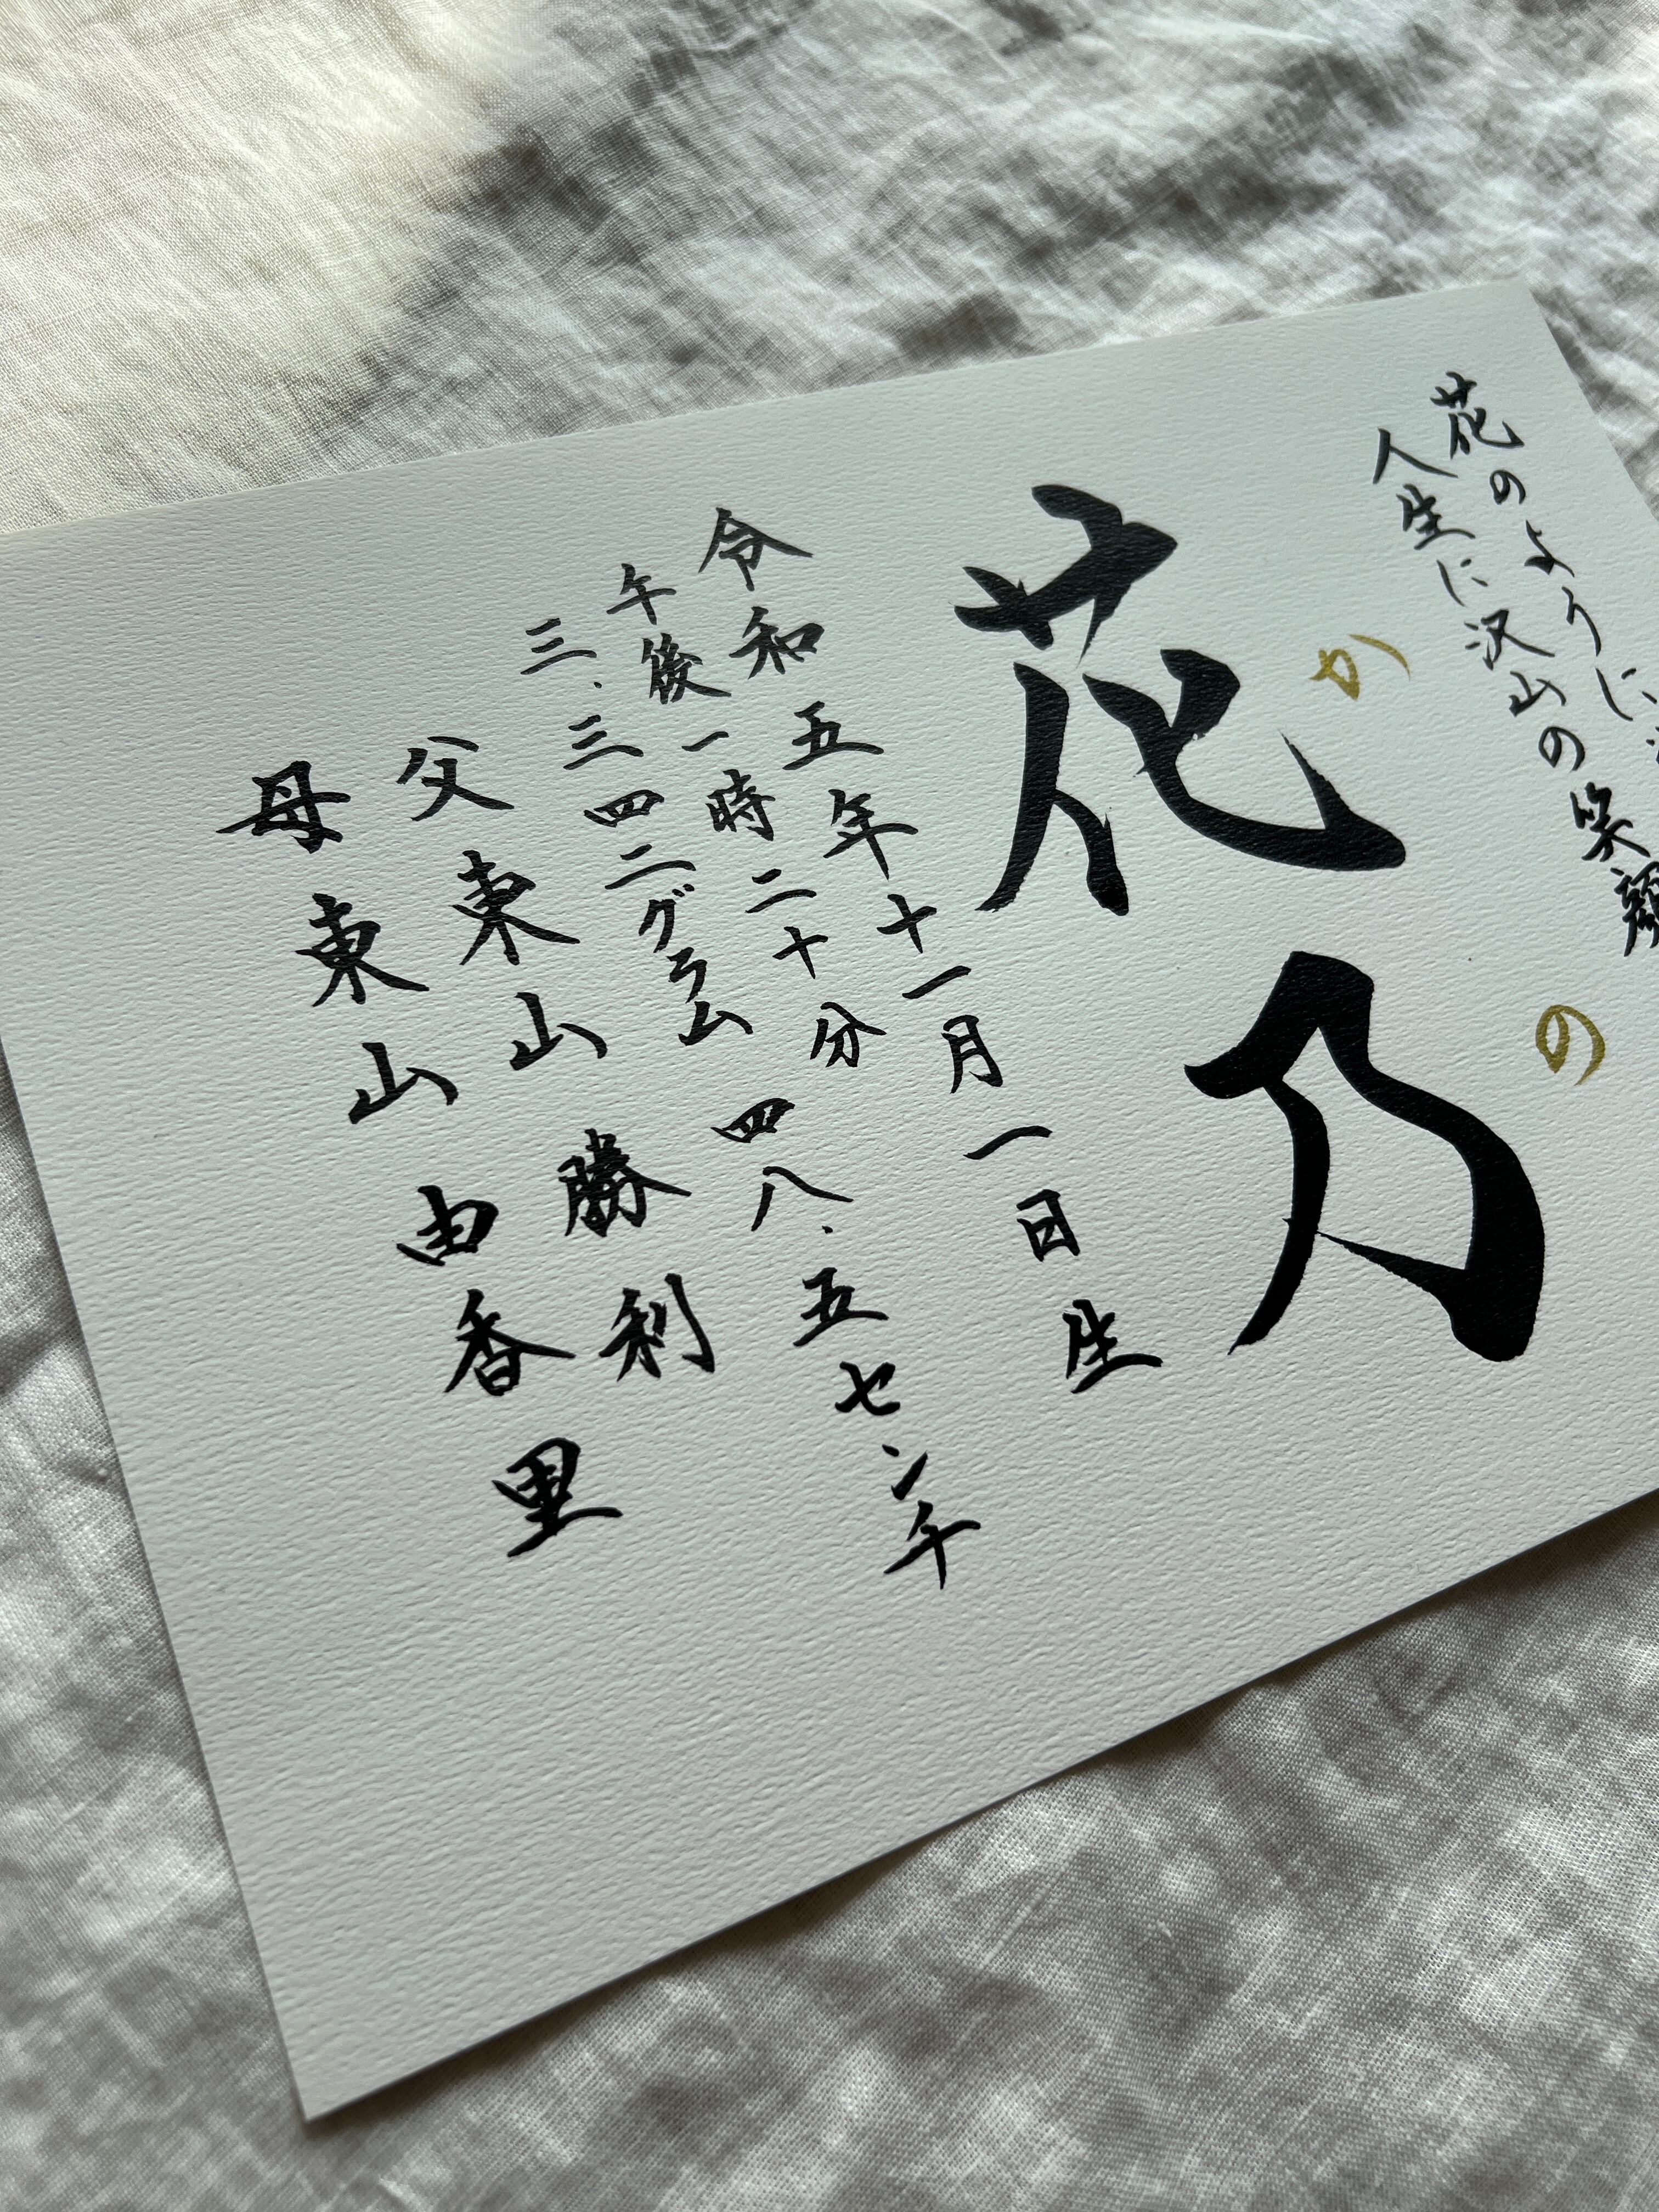 花のように
人生に沢山の笑顔
かの
花乃
令和五年十一月一日生
午後一時二十分
三.三四二グラム 四八.五センチ
父 東山 勝利
母 東山 由香里